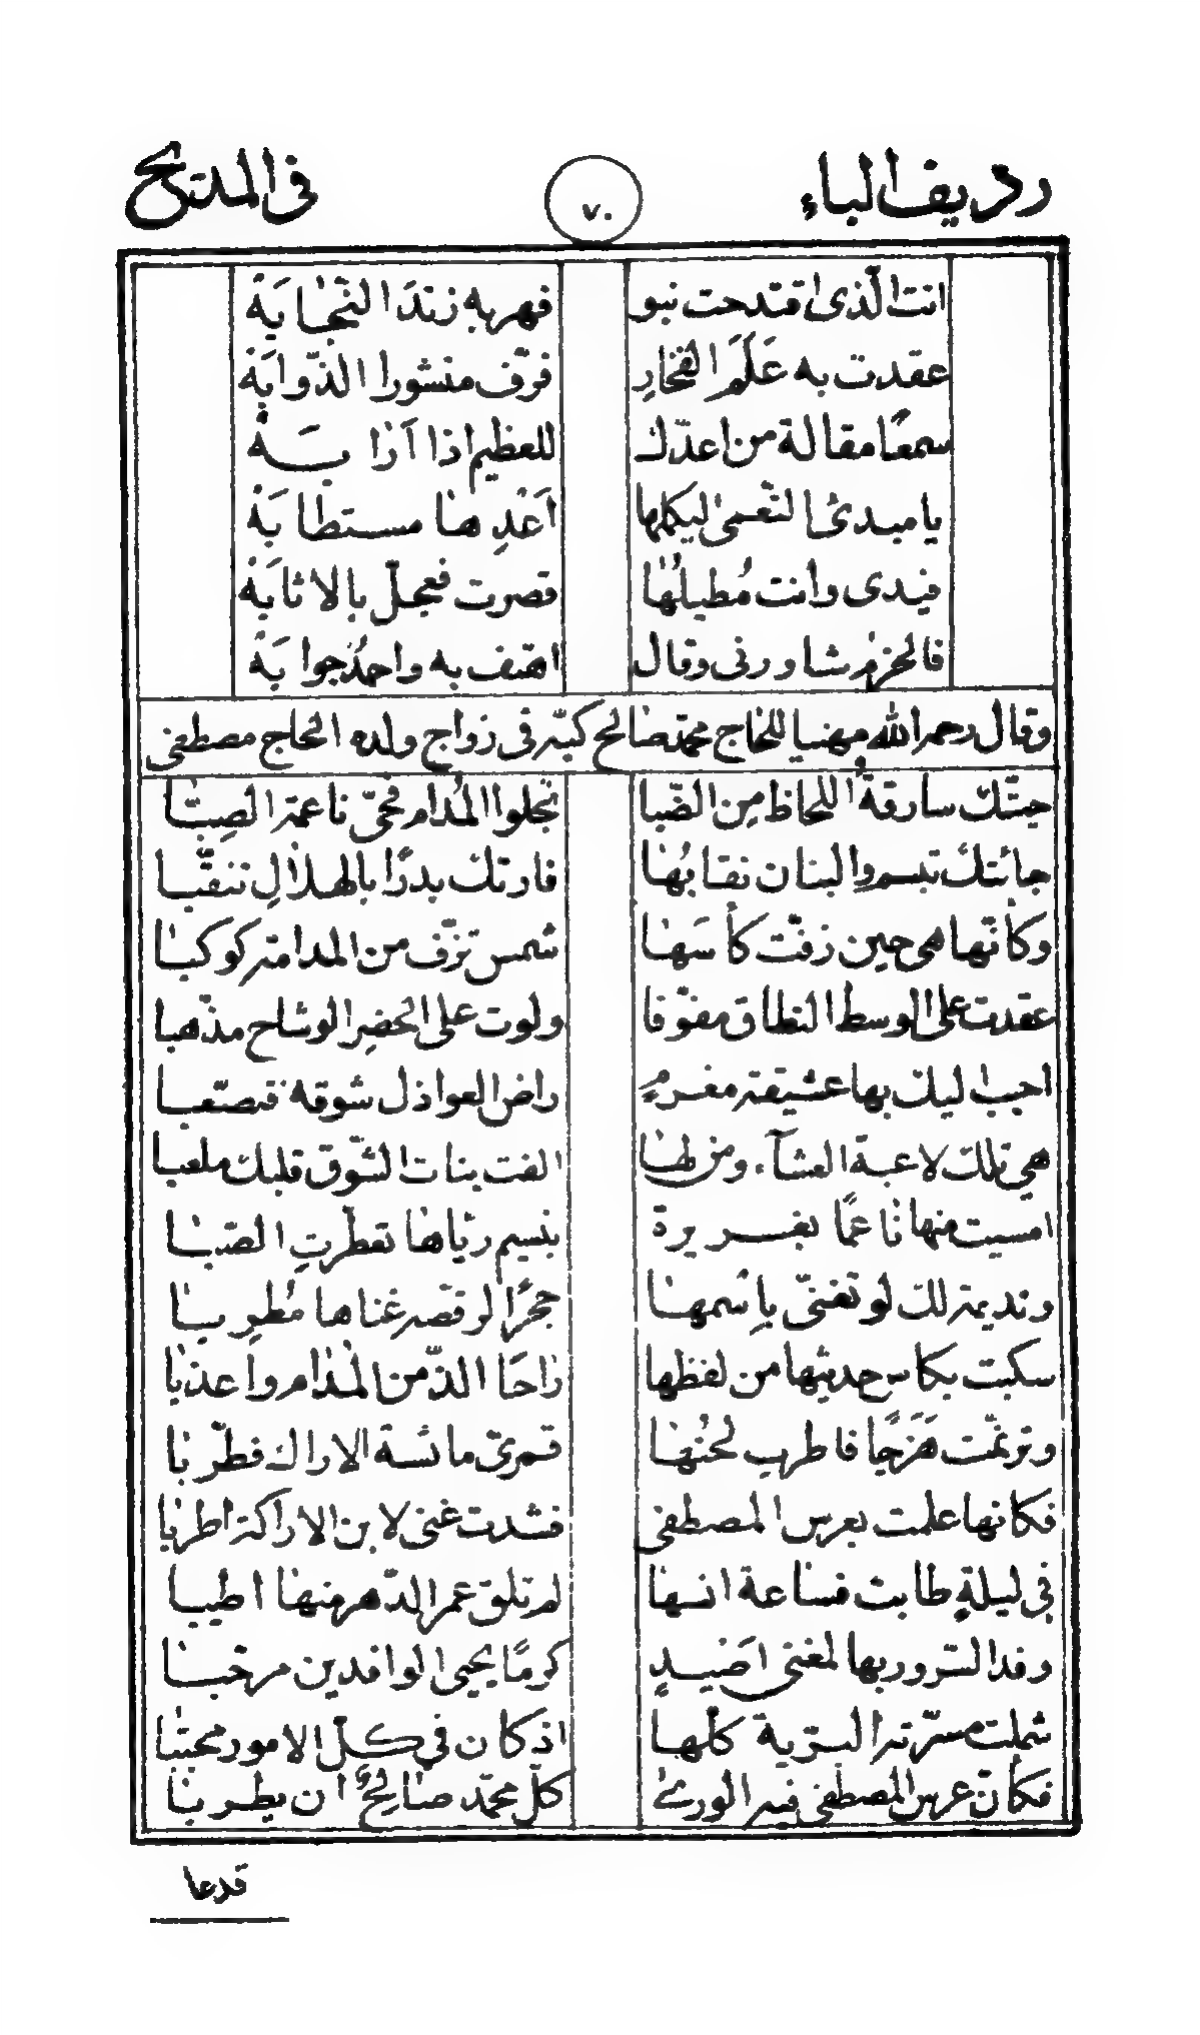 رديف الباء ٧٠ في المديح
انت الّذى اقتدحت نبو فهر به زند النّجابة
عقدت به عَلَم الفخارِ فرّف منشورا الذّوابة
سمعًا مقالة من اعدّك للعظيم اذا اَرابه
يا مبدئ النّعمى ليكملها اَعدِها مستطابة
فيدى وانت مُطيلُها قصرت فعجّل بالاثابة
فالحزم شاورنى وقال اهتف به واحمد جوابه
وقال رحمه الله مهنيا للحاج محمد صالح كبّه فى زواج ولده الحاج مصطفى
حيتّك سارقة اللحاظ من الضّبا تجلوا المُدام فحىّ ناعمة الصِبّا
جائتك تبسم والبنان نقابُها فارتك بدرًا بالهلالِ تنقّبا
وكأنّها هى حين زفّت كأسَها شمس تزّف من المدامة كوكبا
عقدت على الوسط النطاق مفوّفا ولوت على الخصر الوشاح مذّهبا
احبب اليك بها عشيقة مغرمٍ راض العواذل شوقه فتصعّبا
هى تلك لاعبة العشاء ومن لها الفت بنات الشّوق قلبك ملعبا
امسيت منها ناعمًا بغريرة بنسيم ريّاها تعطّرت الصّبا
ونديمة لك لو تغنّى باسمها حجرًا لرقصه غناها مُطربا
سكبت بكاس حديثها من لفظها راحًا الذّ من المُدام واعذبا
وترنمّت هَزَجًا فاطرب لحنُها قمرىّ مائسة الاراك فطرّبا
فكانها علمت بعرس المصطفى فشدت غنى لابن الاراكة اطربا
فى ليلةٍ طابت فساعة انسها لم تلق عمر الدّهر منها اطيبا
وفد السّرور بها لمغنى اصيدٍ كرمًا يحيى الوافدين مرحّبا
شملت مسرّته البريّة كلّها اذ كان فى كلّ الامور محبّبا
فكأنّ عرس المصطفى فيه الورى كلّ محمّد صالحٌ ان يطربا
قدعا